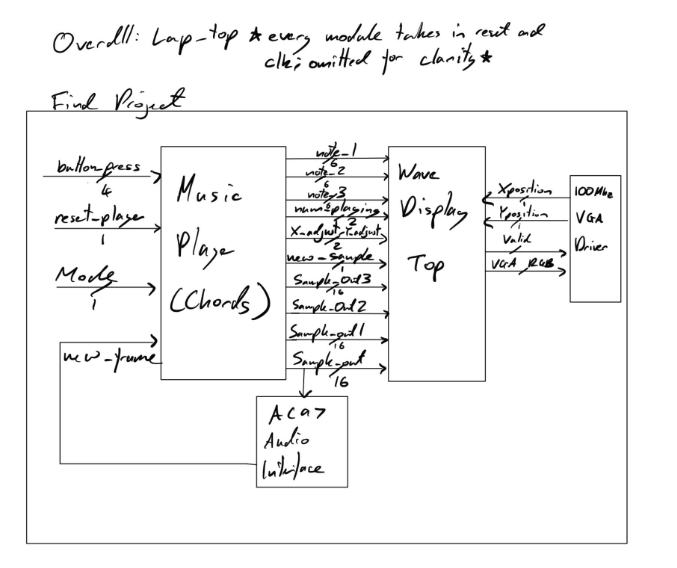 Overall: Lap-top * every module takes in reset and
clk; omitted for clarity *
Final Project
button_press
4
reset_player
1
Mode
1
new_frame
Music
Player
(Chords)
note_1
6
note_2
6
note_3
6
num_playing
2
X-adjust, Y-adjust
2
new_sample
1
Sample_out3
16
Sample_out2
Sample_out1
16
Sample_out
16
Wave
Display
Top
Xposition
Yposition
Valid
VGA_RGB
100Mhz
VGA
Driver
AC97
Audio
Interface